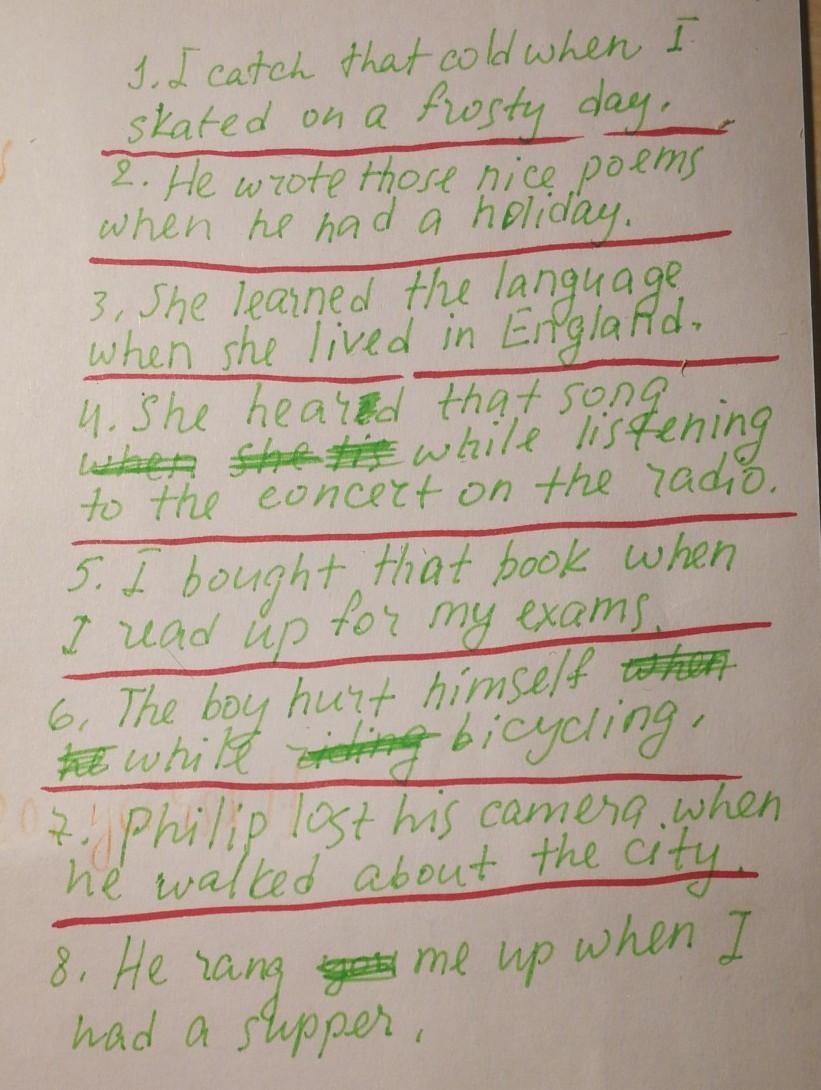 1. I catch that cold when I
skated on a frosty day.
2. He wrote those nice poems
when he had a holiday.
3. She learned the language
when she lived in England.
4. She heard that song
when she lis while listening
to the concert on the radio.
5. I bought that book when
I read up for my exams.
6. The boy hurt himself when
he while riding bicycling.
7. Philip lost his camera when
he walked about the city.
8. He rang you me up when I
had a supper.